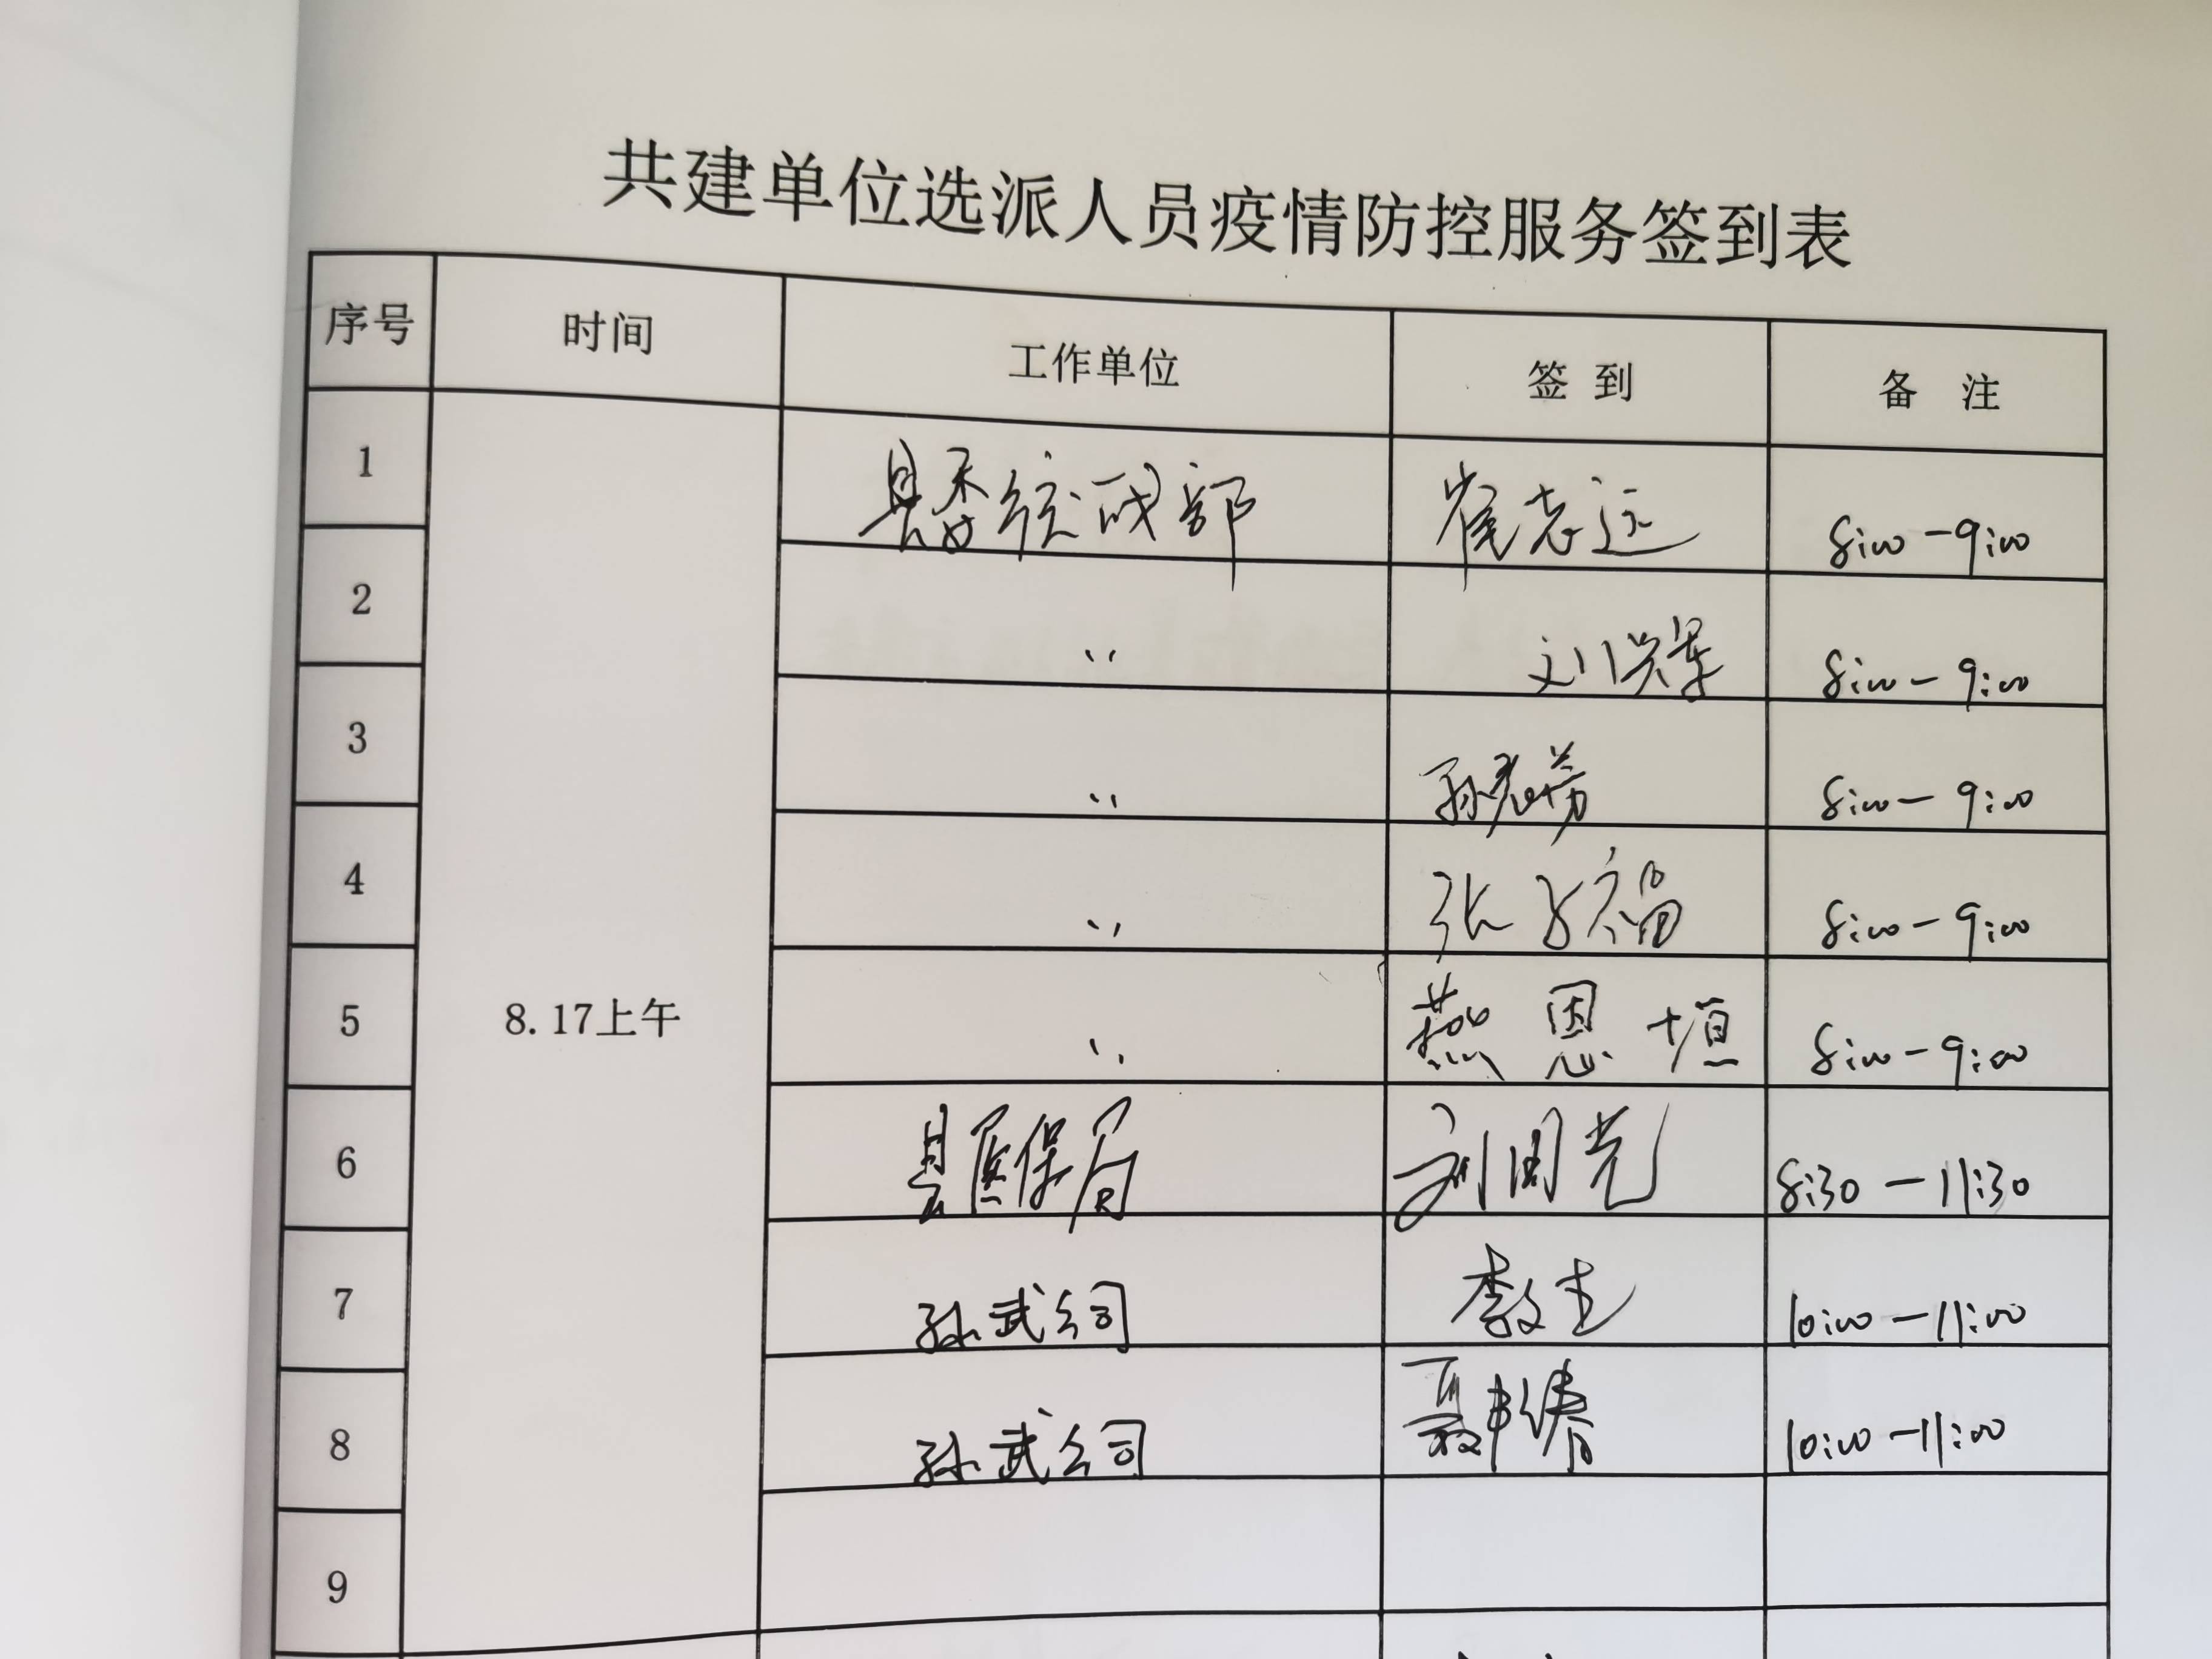 共建单位选派人员疫情防控服务签到表
序号 时间 工作单位 签到 备注
1 县委统战部 崔志远 8:00-9:00
2 〃 刘兴军 8:00-9:00
3 〃 8:00-9:00
4 〃 张子福 8:00-9:00
5 8.17上午 〃 燕恩垣 8:00-9:00
6 县医保局 刘国光 8:30-11:30
7 孙武公司 李文生 10:00-11:00
8 孙武公司 10:00-11:00
9